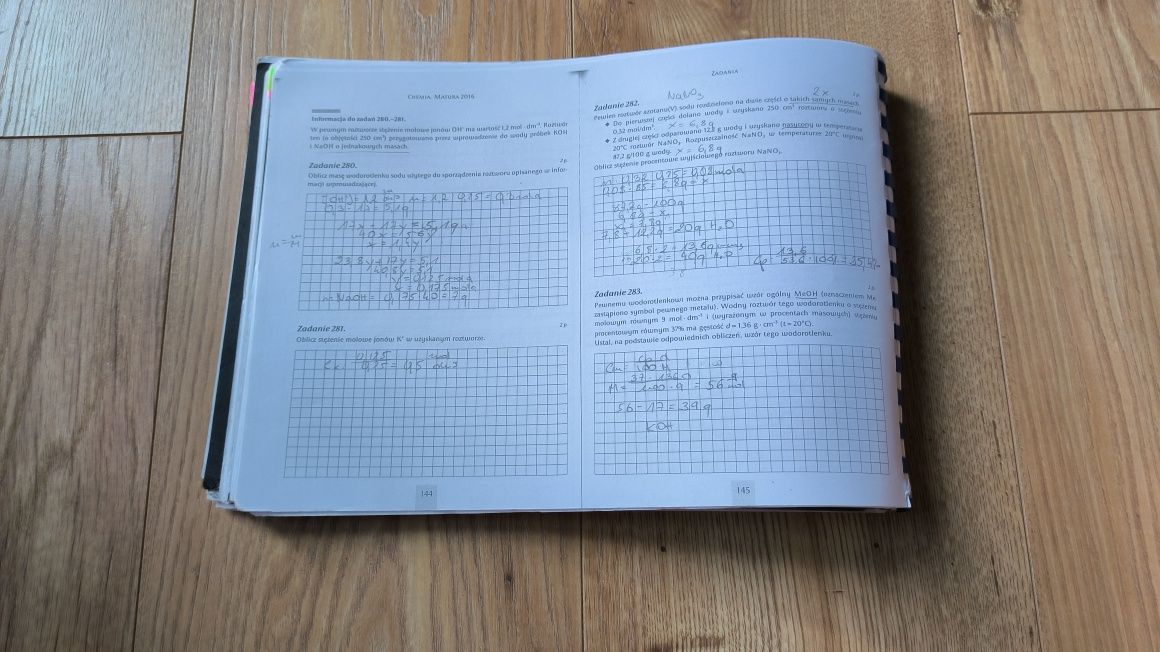 CHEMIA. MATURA 2016
Informacja do zadań 280.–281.
W pewnym roztworze stężenie molowe jonów OH⁻ ma wartość 1,2 mol · dm⁻³. Roztwór
ten (o objętości 250 cm³) przygotowano przez wprowadzenie do wody próbek KOH
i NaOH o jednakowych masach.
Zadanie 280.
2 p.
Oblicz masę wodorotlenku sodu użytego do sporządzenia roztworu opisanego w infor-
macji wprowadzającej.
n = 1,2 · 0,25 = 0,3 mola
0,3 · 17 = 5,1g
17x + 17y = 5,1g
40x = 56y
x = 1,4y
n = m/M
23,8y + 17y = 5,1
40,8y = 5,1
y = 0,125 mola
x = 0,175 mola
m NaOH = 0,175 · 40 = 7g
Zadanie 281.
2 p.
Oblicz stężenie molowe jonów K⁺ w uzyskanym roztworze.
0,125 mol
0,25 = 0,5 dm3
144
ZADANIA
NaNO3 2x
Zadanie 282.
2 p.
Pewien roztwór azotanu(V) sodu rozdzielono na dwie części o takich samych masach.
◆ Do pierwszej części dolano wody i uzyskano 250 cm³ roztworu o stężeniu
0,32 mol/dm³. x = 6,8g
◆ Z drugiej części odparowano 12,2 g wody i uzyskano nasycony w temperaturze
20°C roztwór NaNO₃. Rozpuszczalność NaNO₃ w temperaturze 20°C wynosi
87,2 g/100 g wody. x = 6,8g
Oblicz stężenie procentowe wyjściowego roztworu NaNO₃.
n = 0,32 · 0,25 = 0,08 mola
0,08 · 85 = 6,8g = x
87,2g - 100g
6,8g - x
x = 7,8g
7,8 + 12,2g = 20g H2O
6,8 · 2 = 13,6g
20 · 2 = 40g H2O
Cp = 13,6
53,6 · 100% = 25,4%
Zadanie 283.
2 p.
Pewnemu wodorotlenkowi można przypisać wzór ogólny MeOH (oznaczeniem Me
zastąpiono symbol pewnego metalu). Wodny roztwór tego wodorotlenku o stężeniu
molowym równym 9 mol · dm⁻³ i (wyrażonym w procentach masowych) stężeniu
procentowym równym 37% ma gęstość d = 1,36 g · cm⁻³ (t = 20°C).
Ustal, na podstawie odpowiednich obliczeń, wzór tego wodorotlenku.
Cm = Cp · d
100 M
M = 37 · 1360
100 · 9 = 56 g/mol
56 - 17 = 39 g
KOH
145